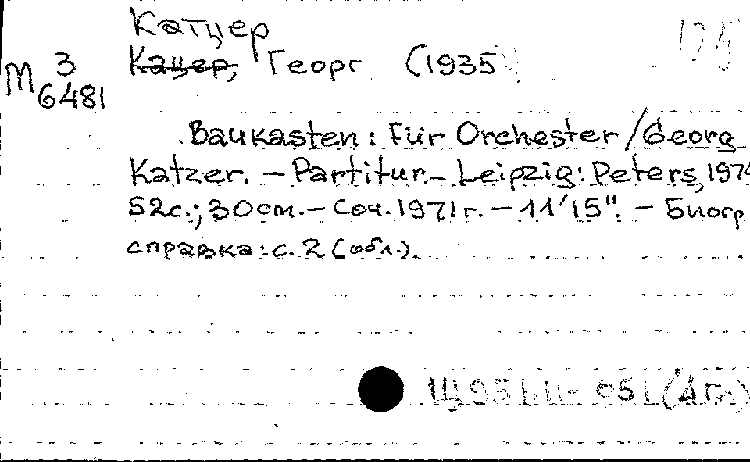 Катцер
М З Кацер, Георг (1935
6481
Baukasten: Für Orchester / Georg
Katzer. – Partitur. – Leipzig: Peters, 197
52с.; 30см. – Соч. 1971г. – 11'15". – Биогр
справка: с. 2 (обл.).